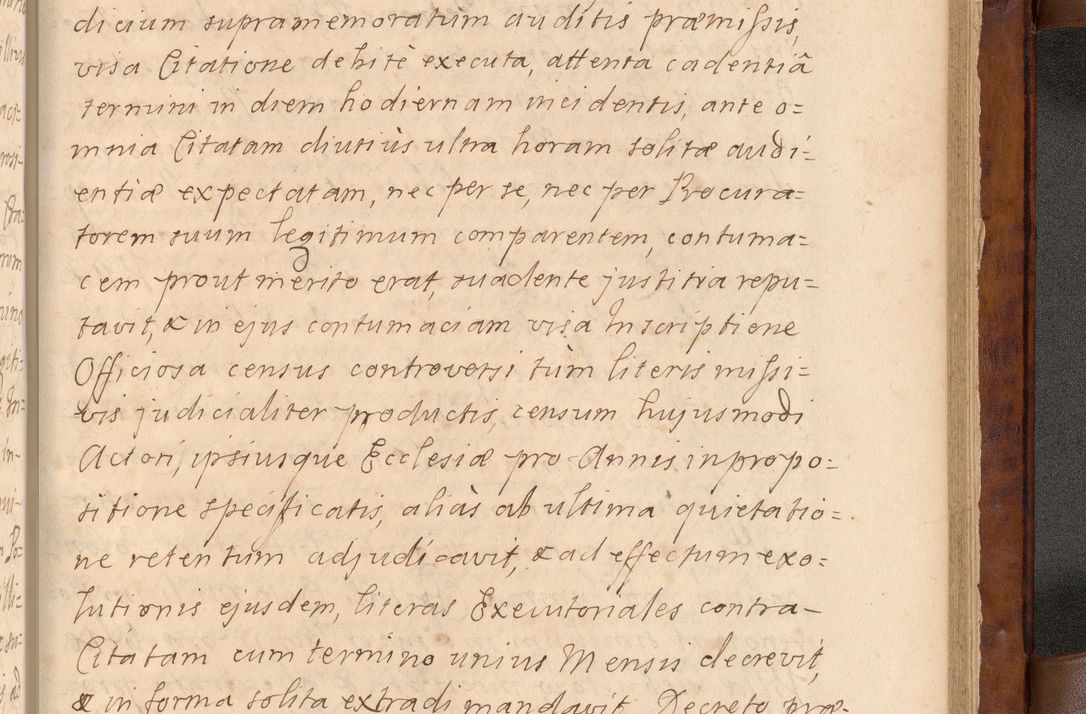 dicium supramemoratum auditis præmissis,
visa Citatione debitè executa, attenta cadentiâ
termini in diem hodiernam incidentis, ante o=
mnia Citatam diutiùs ultra horam solitæ audi=
entiæ expectatam, nec per se, nec per Procura=
torem suum legitimum comparentem, contuma=
cem prout merito erat, suadente justitia repu=
tavit, & in ejus contumaciam visa Inscriptione
Officiosa census controversi tùm literis missi=
vis judicialiter productis, censum hujusmodi
Actori, ipsiusque Ecclesiæ pro Annis in propo=
sitione specificatis, aliàs ab ultima quietatio=
ne retentum adjudicavit, & ad effectum exo=
lutionis ejusdem, literas Executoriales contra
Citatam cum termino unius Mensis decrevit,
& in forma solita extradi mandavit. Decreto præ=